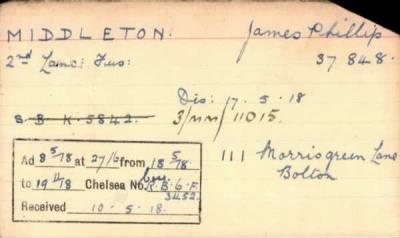 MIDDLETON. James Phillip
2nd Lanc: Fus: 37848.
Dis: 17.5.18
S B K 5842. 3/ /11015.
Ad 8 5/18 at 27/6 from 18 5/18
to 19 11/18 Chelsea No. R.B.6.F. 3452.
Received 10.5.18.
111 Morrisgreen Lane
Bolton